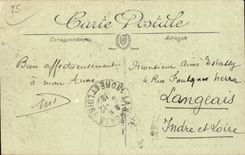 75
Carte Postale
Correspondance
Adresse
Bien affectueusement
à mon Aimé
Monsieur Aimé
4 Rue Foulques Nerra
Langeais
Indre et Loire
INDRE ET LOIRE